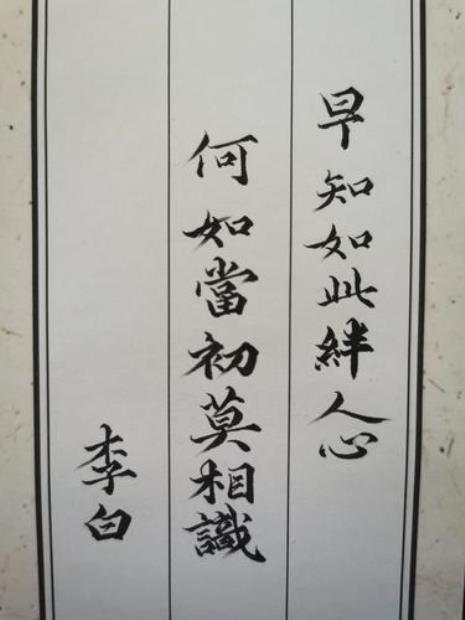 早知如此絆人心
何如當初莫相識
李白